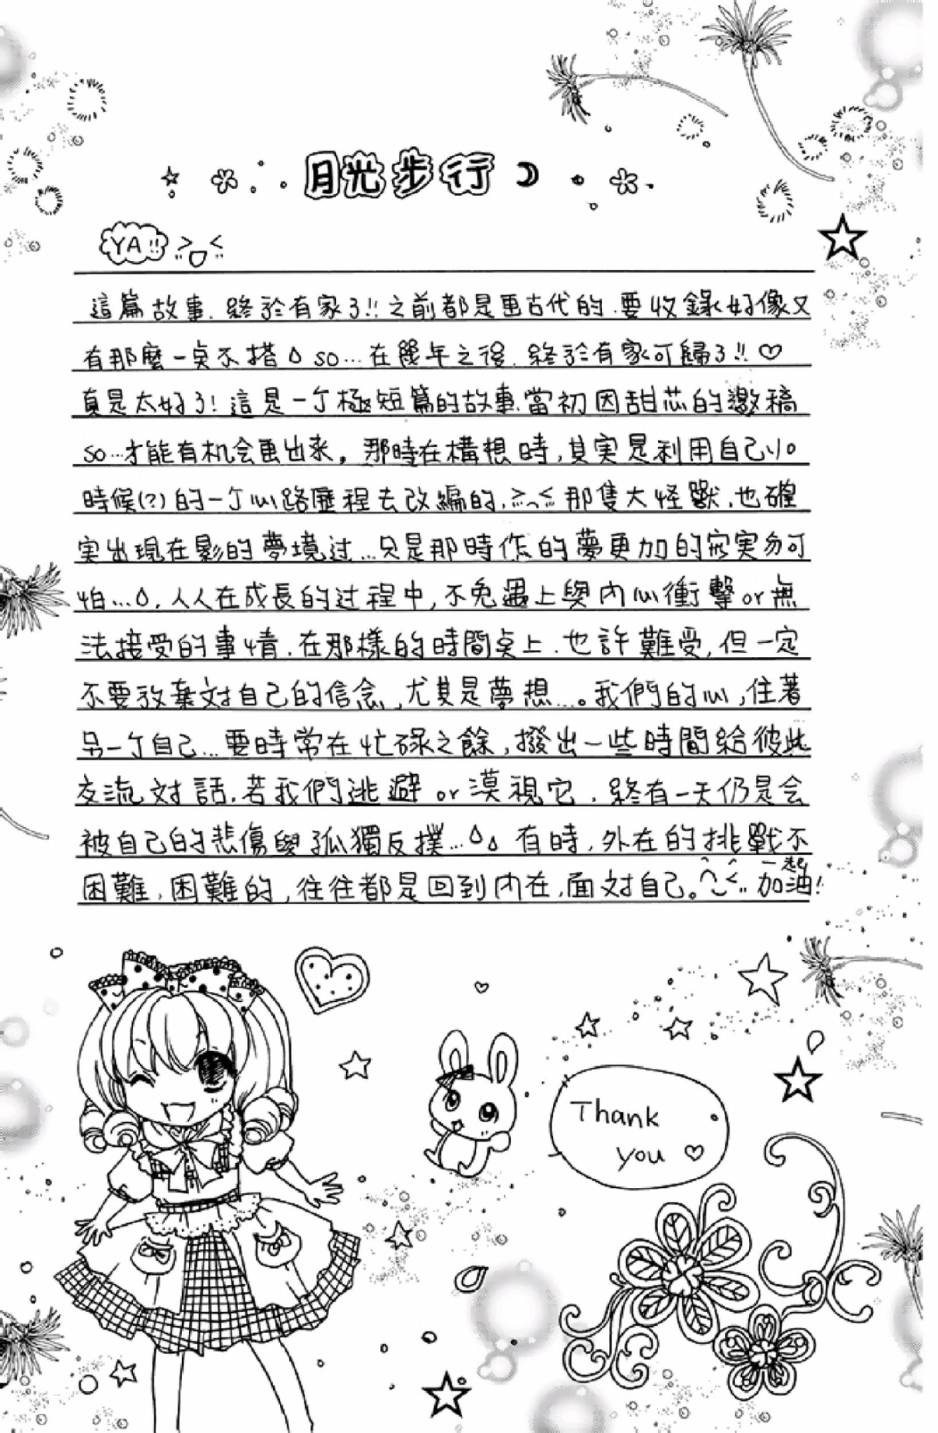 月光步行
YA!!
這篇故事.終於有家了!!之前都是画古代的.要收錄好像又
有那麼一桌不搭 so…在幾年之後.終於有家可歸了!!♡
真是太好了!這是一个極短篇的故事.當初因甜芯的邀稿
so…才能有机会画出來。那時在構想時,其實是利用自己小。
時候(?)的一个心路歷程去改編的.那隻大怪獸.也確
實出現在影的夢境过…只是那時作的夢更加的寫实勿可
怕….人人在成長的过程中,不免遇上與內心衝擊or無
法接受的事情.在那樣的時間桌上.也許難受,但一定
不要放棄対自己的信念,尤其是夢想…。我們的心,住著
另一个自己…要時常在忙碌之餘,撥出一些時間給彼此
交流対話.若我們逃避or漠視它.終有一天仍是会
被自己的悲傷與孤獨反撲… 有時,外在的挑戰不
困難.困難的,往往都是回到內在,面対自己。一起加油!
Thank
you ♡